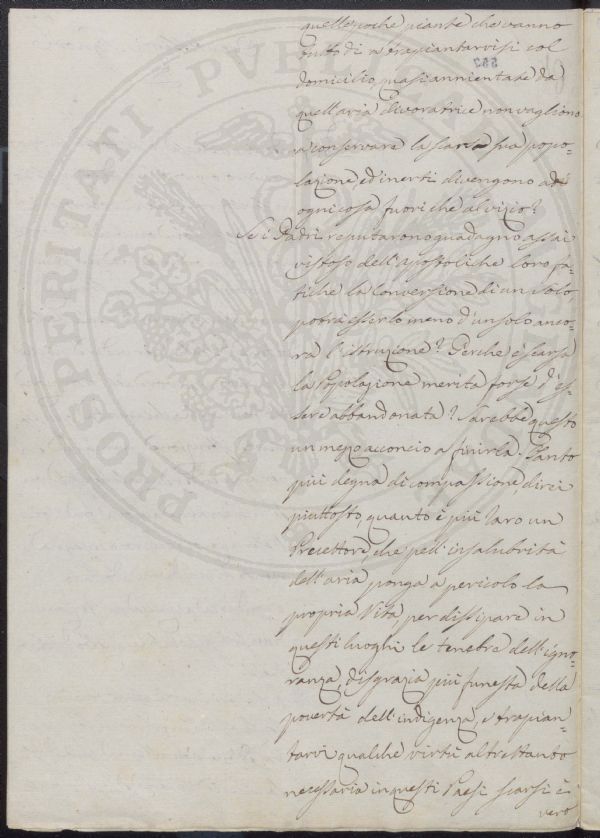 PROSPERITATI PUBLICAE
quelle poche piante che vanno
tutto dì a trapiantarvisi col
domicilio, quasi annientate da
quell'aria divoratrice non vagliono
a conservare la scarsa sua popo-
lazione, ed inerti divengono ad
ogni cosa fuori che al vizio?
Se i Padri reputarono guadagno assai
vistoso dell'apostoliche loro fa-
tiche la Conversione di un solo,
potrà esserlo meno d'un solo anco-
ra l'istruzione? Perche è scarsa
la Popolazione merita forse d'es-
sere abbandonata? Sarebbe questo
un mezzo acconcio a finirla. Tanto
più degna di compassione, direi
piuttosto, quanto è più raro un
Precettore, che pell'insalubrità
dell'aria ponga a pericolo la
propria Vita, per dissipare in
questi luoghi le tenebre dell'igno-
ranza, disgrazia più funesta della
povertà dell'indigenza, e trapian-
tarvi qualche virtù altrettanto
necessaria in questi Paesi scarsi è
vero